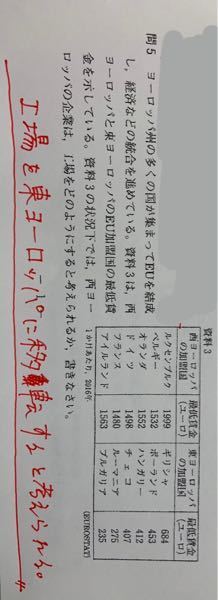 問5 ヨーロッパ州の多くの国が集まってEUを結成
し，経済などの統合を進めている。資料3は，西
ヨーロッパと東ヨーロッパのEU加盟国の最低賃
金を示している。資料3の状況下では，西ヨー
ロッパの企業は，工場をどのようにすると考えられるか，書きなさい。
資料3
西ヨーロッパの加盟国 最低賃金(ユーロ) 東ヨーロッパの加盟国 最低賃金(ユーロ)
ルクセンブルク 1999 ギリシャ 684
ベルギー 1532 ポーランド 453
オランダ 1552 ハンガリー 412
ドイツ 1498 チェコ 407
フランス 1480 ルーマニア 275
アイルランド 1563 ブルガリア 235
1か月あたり，2016年 (EUROSTAT)
工場を東ヨーロッパに すると考えられる。